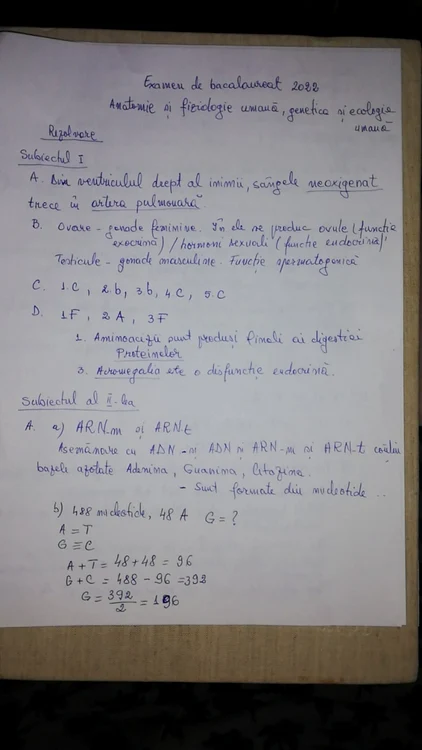 Examen de bacalaureat 2022
Anatomie și fiziologie umană, genetică și ecologie
umană
Rezolvare
Subiectul I
A. Din ventriculul drept al inimii, sângele neoxigenat
trece în artera pulmonară.
B. Ovare - gonade feminine. În ele se produc ovule (funcție
exocrină) / hormoni sexuali (funcție endocrină)
Testicule - gonade masculine. Funcție spermatogonică
C. 1.C, 2.b, 3.b, 4.C, 5.C
D. 1F, 2A, 3F
1. Aminoacizii sunt produși finali ai digestiei
Proteinelor
3. Acromegalia este o disfuncție endocrină.
Subiectul al II-lea
A. a) ARN-m și ARN-t
Asemănare cu ADN - și ADN și ARN-m și ARN-t conțin
bazele azotate Adenina, Guanina, Citozina.
- Sunt formate din nucleotide ..
b) 488 nucleotide, 48 A G = ?
A = T
G ≡ C
A + T = 48 + 48 = 96
G + C = 488 - 96 = 392
G = 392/2 = 196